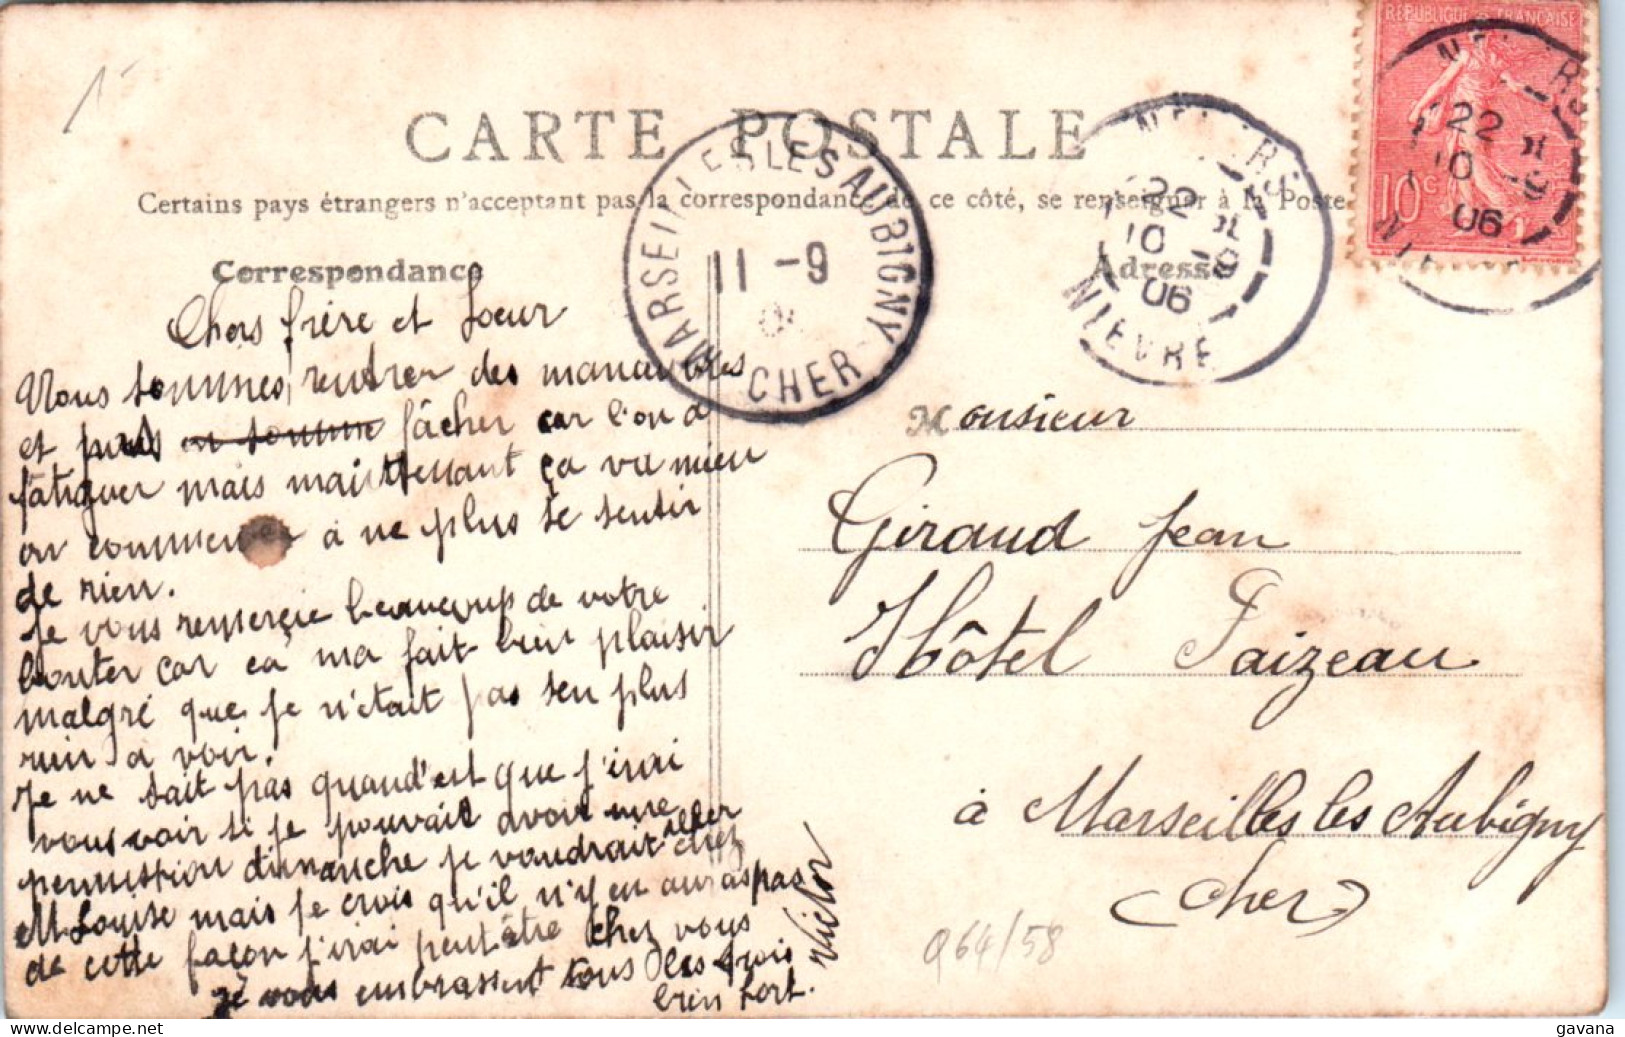 RÉPUBLIQUE FRANÇAISE
10c
NEVERS
22
10 -9
06
NIÈVRE
CARTE POSTALE
Certains pays étrangers n'acceptant pas la correspondance de ce côté, se renseigner à la Poste
MARSEILLES LES AUBIGNY
11 -9
CHER
Correspondance
Adresse
Chers frère et Soeur
Nous sommes rentrer des manœuvres
et puis en somme fâcher car l'on a
fatiguer mais maintenant ça va mieu
on commence à ne plus se sentir
de rien.
Je vous remerçie beaucoup de votre
bonter car ça ma fait bien plaisir
malgré que je n'était pas sen plus
rien a voir.
Je ne sait pas quand'est que j'irai
vous voir si je pouvait avoir une
permission dimanche je voudrait aller chez
M Louise mais je crois qu'il n'y en auras pas
de cette façon j'irai peut être chez vous
je vous embrassent tous les trois
bien fort.
Victor
Monsieur
Giraud Jean
Hôtel Faizeau
à Marseilles les Aubigny
(Cher)
Q64/58
delcampe.net
gavana